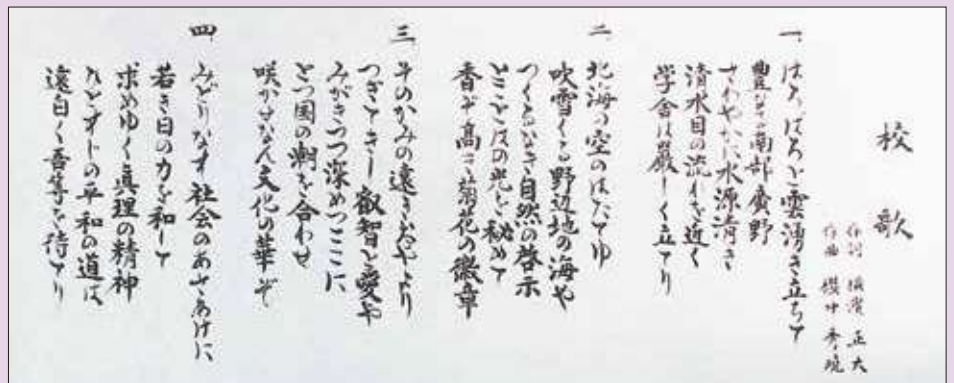 校歌
作詞 横濱 正大
作曲
一、はろばろと雲湧き立ちて
豊かなる南部廣野
さわやかに水源清き
清水目の流れも近く
学舎は嚴しく立てり
二、北海の空のはたてゆ
吹雪くる野辺地の海や
つくるなき自然の啓示
とことはの光を秘めて
香ぞ高き菊花の徽章
三、そのかみの遠きおやより
つぎてきし叡智を愛や
みがきつつ深めつここに
とつ国の潮を合わせ
咲かせなん文化の華ぞ
四、みどりなす社会のあさあけに
若き日の力を和して
求めゆく眞理の精神
ひとすじの平和の道は
遠白く吾等を待てり